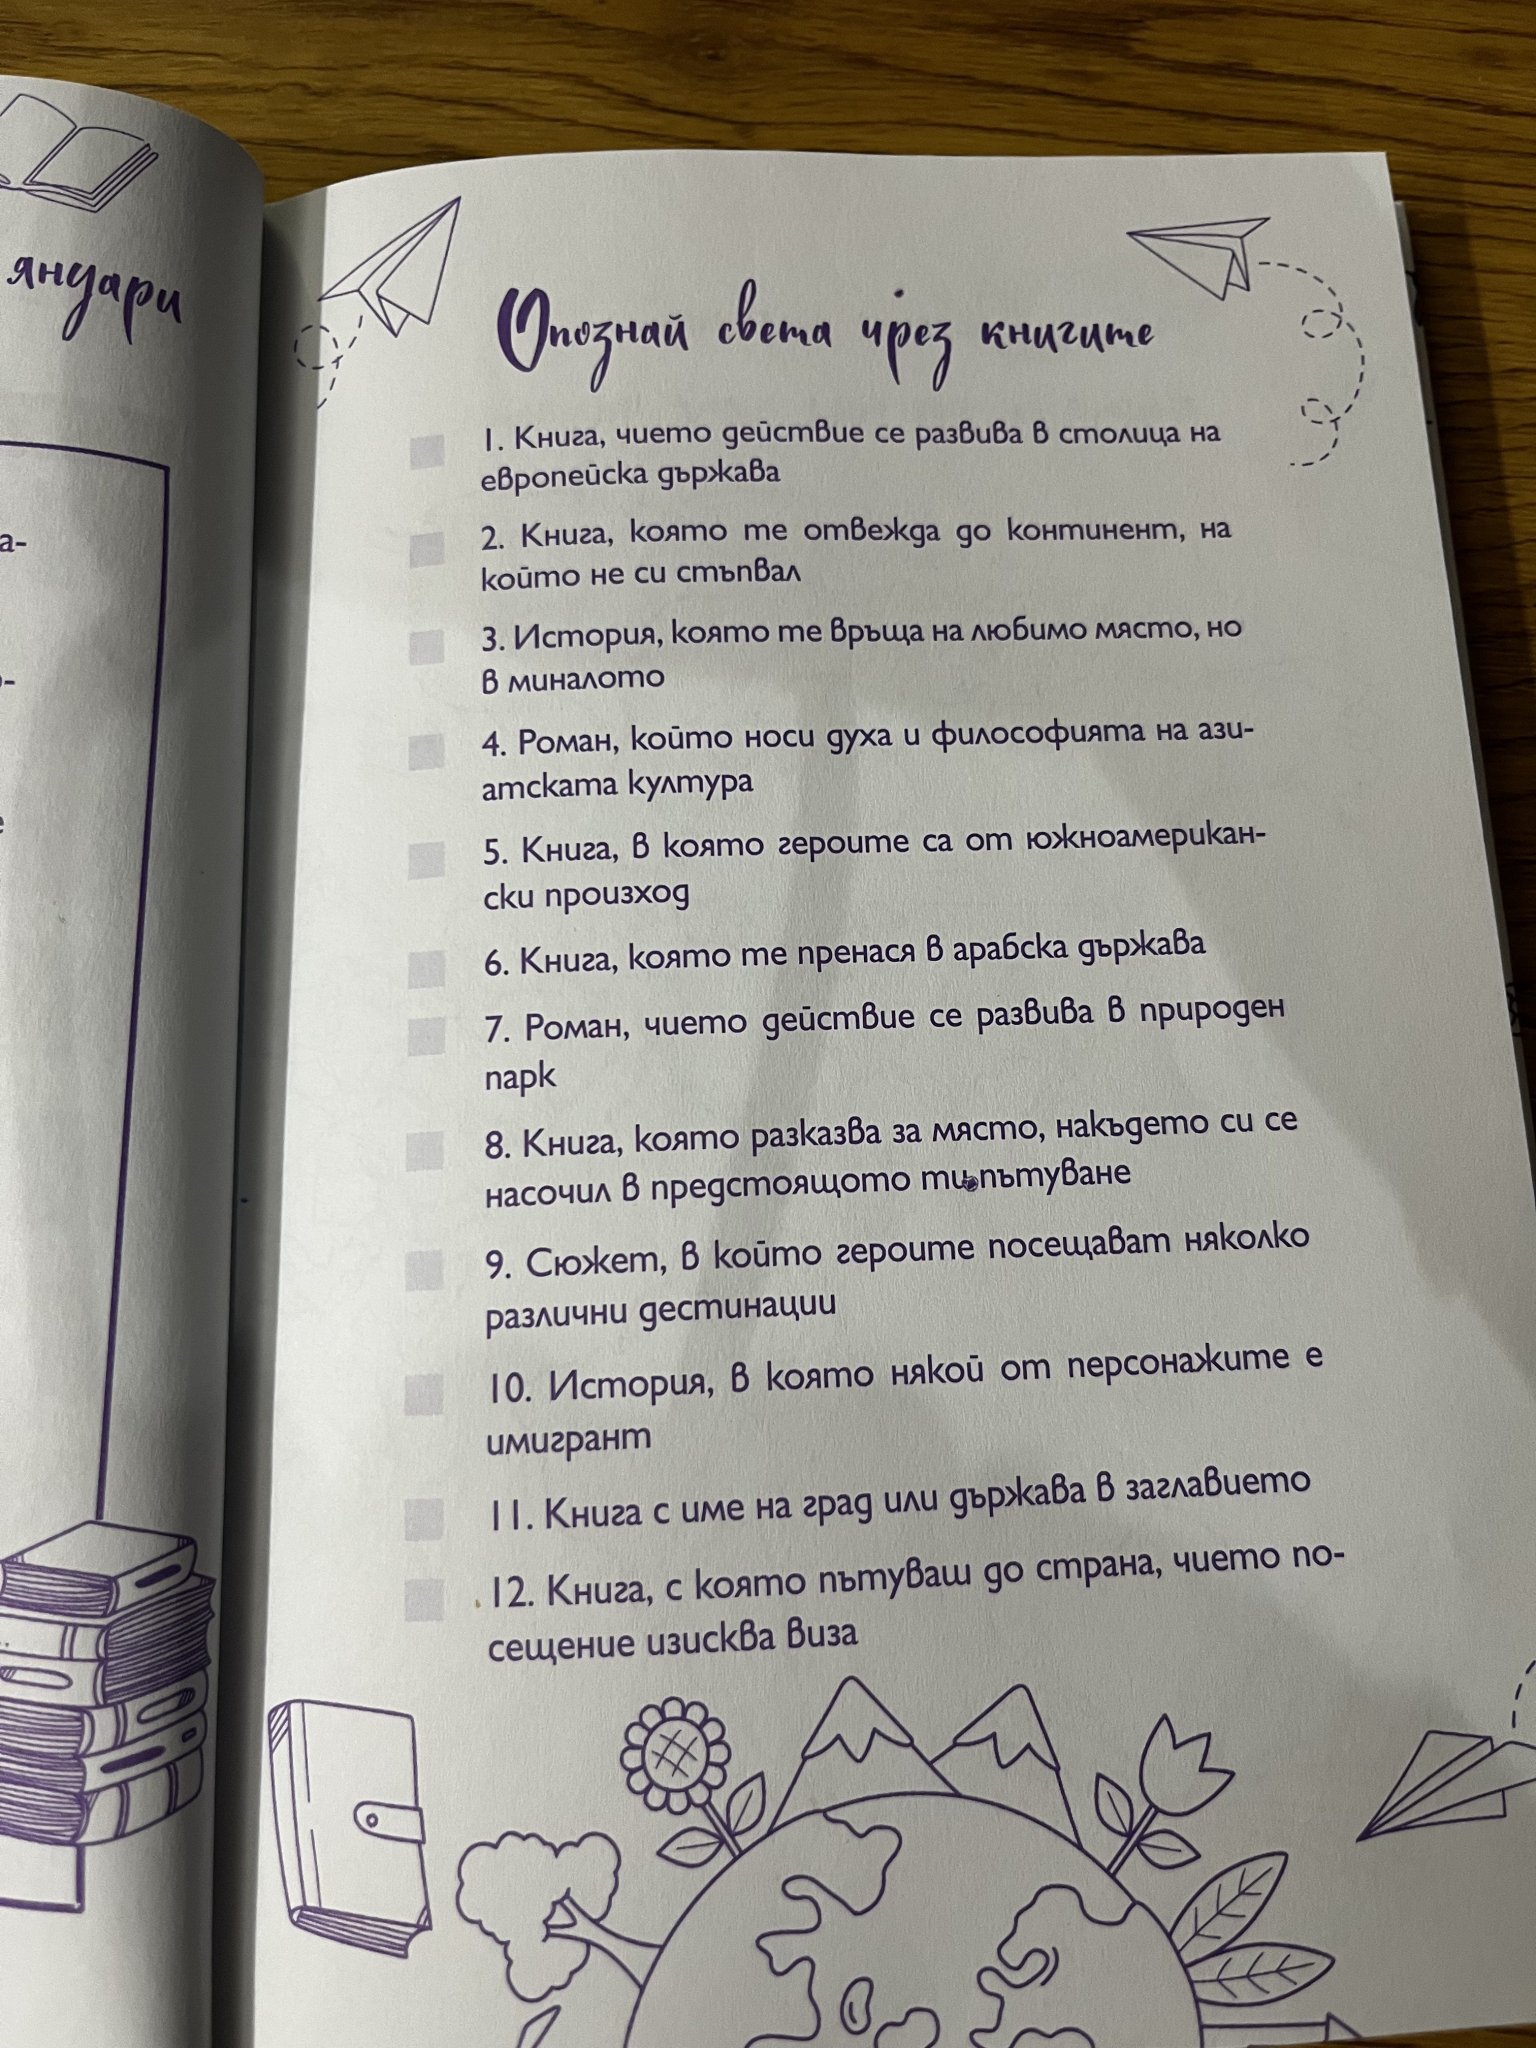 януари
а-
е
Опознай света чрез книгите
1. Книга, чието действие се развива в столица на
европейска държава
2. Книга, която те отвежда до континент, на
който не си стъпвал
3. История, която те връща на любимо място, но
в миналото
4. Роман, който носи духа и философията на ази-
атската култура
5. Книга, в която героите са от южноамерикан-
ски произход
6. Книга, която те пренася в арабска държава
7. Роман, чието действие се развива в природен
парк
8. Книга, която разказва за място, накъдето си се
насочил в предстоящото ти пътуване
9. Сюжет, в който героите посещават няколко
различни дестинации
10. История, в която някой от персонажите е
имигрант
11. Книга с име на град или държава в заглавието
12. Книга, с която пътуваш до страна, чието по-
сещение изисква виза